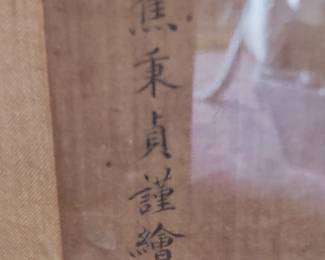 焦秉貞謹繪